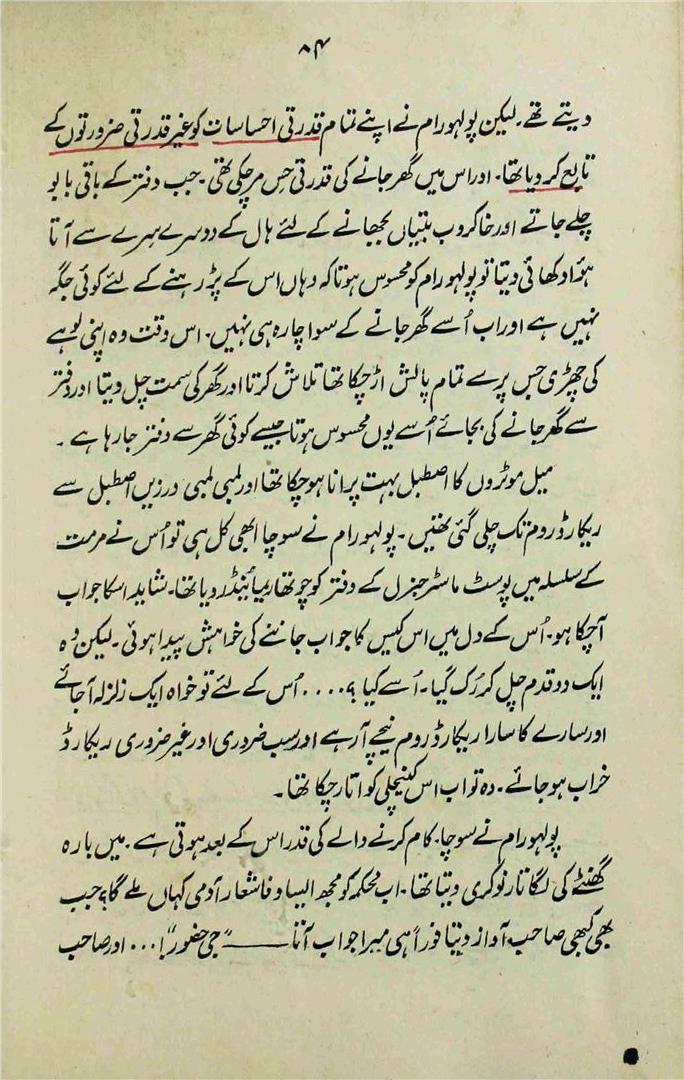 ۸۴
دیتے تھے۔ لیکن پولہو رام نے اپنے تمام قدرتی احساسات کو غیر قدرتی ضرورتوں کے
تابع کر دیا تھا۔ اور اس میں گھر جانے کی قدرتی حِس مر چکی تھی۔ جب دفتر کے باقی بابو
چلے جاتے اور خاکروب بتیاں بجھانے کے لئے ہال کے دوسرے سِرے سے آتا
ہوُا دکھائی دیتا تو پولہو رام کو محسوس ہوتا کہ وہاں اس کے پڑ رہنے کے لئے کوئی جگہ
نہیں ہے اور اب اُسے گھر جانے کے سوا چارہ ہی نہیں۔ اس وقت وہ اپنی لوہے
کی چھڑی جس پر سے تمام پالش اڑ چکا تھا تلاش کرتا اور گھر کی سمت چل دیتا اور دفتر
سے گھر جانے کی بجائے اُسے یوں محسوس ہوتا جیسے کوئی گھر سے دفتر جا رہا ہے۔
میل موٹروں کا اصطبل بہت پرانا ہو چکا تھا اور لمبی لمبی درزیں اصطبل سے
ریکارڈ روم تک چلی گئی تھیں۔ پولہو رام نے سوچا ابھی کل ہی تو اُس نے مرمت
کے سلسلہ میں پوسٹ ماسٹر جنرل کے دفتر کو چوتھا ریمائینڈر دیا تھا۔ شاید اسکا جواب
آ چکا ہو۔ اُس کے دل میں اس کیس کا جواب جاننے کی خواہش پیدا ہوئی۔ لیکن وُہ
ایک دو قدم چل کر رُک گیا۔ اُسے کیا؟.... اُس کے لئے تو خواہ ایک زلزلہ آ جائے
اور سارے کا سارا ریکارڈ روم نیچے آ رہے اور سب ضروری اور غیر ضروری ریکارڈ
خراب ہو جائے۔ وہ تو اب اس کینچلی کو اتار چکا تھا۔
پولہو رام نے سوچا۔ کام کرنے والے کی قدر اس کے بعد ہوتی ہے۔ میں بارہ
گھنٹے کی لگاتار نوکری دیتا تھا۔ اب محکمہ کو مجھ ایسا وفا شعار آدمی کہاں ملے گا؟ جب
بھی کبھی صاحب آواز دیتا فوراً ہی میرا جواب آتا —— "جی حضور"!... اور صاحب